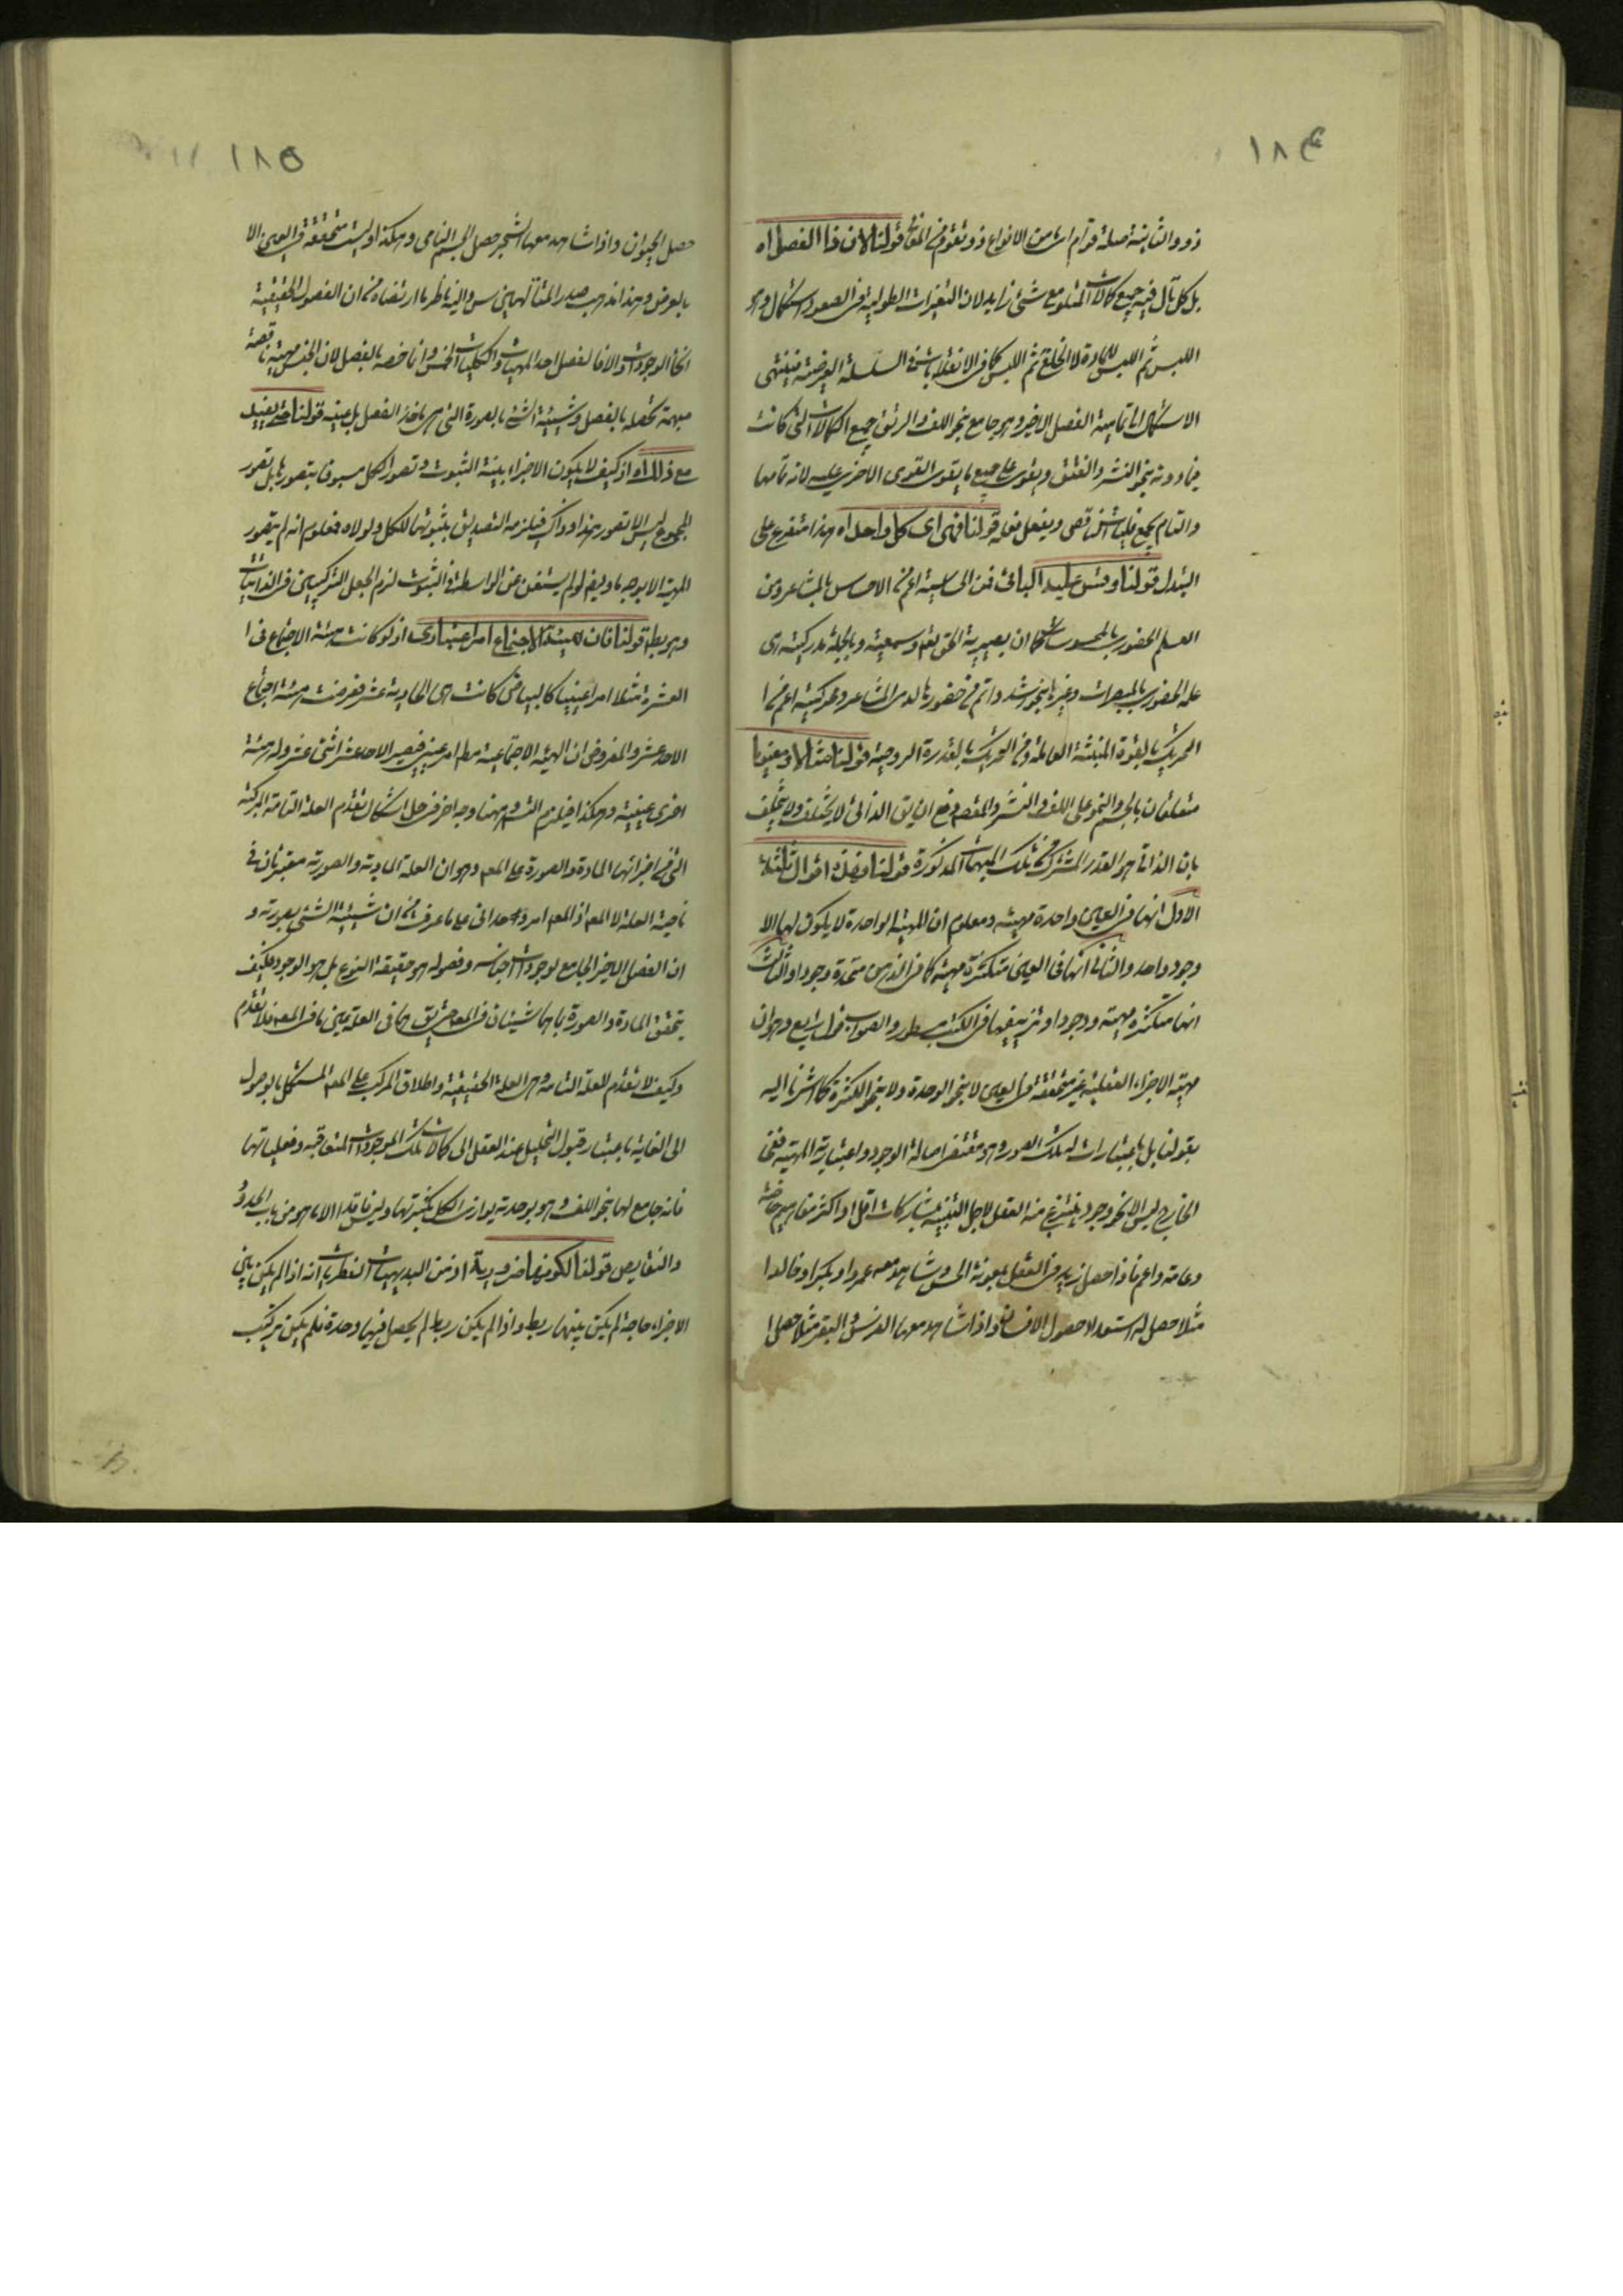 ١٨۴
ذو والثانية صلة قوام اى من الانواع ذو وتقوم فى المقام قولنا لان ذا الفصل اه
بل كل تال فيه جميع كمالات المتلو مع شئ زايد لان التغيرات الطولية فى الصعود استكمال
اللبس ثم اللبس للمادة لا الخلع ثم اللبس كما فى الانقلابات فى السلسلة العرضية فينتهى
الاستكمالات الى تمامية الفصل الاخير وهو جامع بنحو اللف والرتق جميع الكمالات التى كانت
فيما دونه بنحو النشر والفتق ويقوى على جميع ما يقوى القوى الاخرى عليه لانه تمامها
والتمام يجمع فعليات الناقص ويفعل فعله قولنا فهى اى كل واحد اه هذا متفرع على
التبدل قولنا وقس عليه البواقى فمن الحساسية اعم من الاحساس بالمشاعر ومن
العلم الحضورى بالمحسوسات كما ان بصيرية الحق تعالى وسميعيته وبالجملة مدركيته هى
علمه الحضورى بالمبصرات وغيرها بنحو اشد واتم من حضورها لدى المشاعر ومحركيته اعم من
التحريك بالقوة المنبثة العاملة ومن التحريك بالقدرة الروحية قولنا مثلا او معينا
متعلقان بالجسم والنمو على اللف والنشر والمقصود دفع ان يق الذاتى لا يختلف ولا يتخلف
بان الذاتى هو القدر المشترك من تلك المبهمات المذكورة قولنا وفذه اقوال ثلثة
الاول انها فى العين واحدة مهية ومعلوم ان المهية الواحدة لا يكون لها الا
وجود واحد والثانى انها فى العين متكثرة مهية كما فى الذهن متحدة وجودا والثالث
انها متكثرة مهية ووجودا وتزييفها فى الكتب مسطور والصواب قول رابع وهو ان
مهية الاجزاء العقلية غير متحققة فى العين لا بنحو الوحدة ولا بنحو الكثرة كما اشرنا اليه
بقولنا بل باعتبارات لتلك الصور وهو مقتضى اصالة الوجود واعتبارية المهية ففى
الخارج ليس الا نحو وجود ينتزع منه العقل لاجل التنبه بمشاركات اقل او اكثر مفاهيم خاصة
وعامة واعم فاذا حصل زيد فى العقل بمعونة الحس وشاهد معه عمروا وبكرا وخالدا
مثلا حصل له استعداد حصول الانسان واذا شاهد معها الفرس والبقر مثلا حصل له
١٨٥
حصل الحيوان واذا شاهد معها الشجر حصل الجسم النامى وهكذا وليست متحققة فى العين الا
بالعرض وهذا مذهب صدر المتالهين س واليه ناظر ما ارتضاه من ان الفصول الحقيقية
انحاء الوجودات والا فالفصل احد المهيات والكليات الخمس وانما خصه بالفصل لان الجنس مهية ناقصة
مبهمة تحصله بالفصل وشيئية الشئ بالصورة التى هى ماخذ الفصل بل عينه قولنا حتى يفيد
مع ذلك اه اذ كيف لا يكون الاجزاء بينة الثبوت وتصور الكل مسبوق بتصورها بل تصور
المجموع ليس الا تصور هذا وذاك فيلزمه التصديق بثبوتها للكل ولولاه فمعلوم انه لم يتصور
المهية الا بوجه ما وايضا لو لم يستغن عن الواسطة فى الثبوت لزم الجعل التركيبى فى الذاتيات
وهو بط قولنا فان هيئة الاجتماع امر اعتبارى اذ لو كانت هيئة الاجتماع فى
العشرة مثلا امرا عينيا كالبياض كانت هى الحادية عشر فعرضت هيئة اجتماع
الاحد عشر والمفروض ان الهيئة الاجتماعية مط امر عينى فيصير الاحد عشر اثنى عشر وله هيئة
اخرى عينية وهكذا فيلزم التس وههنا وجه اخر فى حل اشكال تقدم العلة التامة المركبة
التى من اجزائها المادة والصورة على المع وهو ان العلة المادية والصورية معتبرتان فى
ناحية العلة لا المع اذ المع امر وحدانى على ما عرف من ان شيئية الشئ بصورته و
ان الفصل الاخير الجامع لوجودات اجناسه وفصوله هو حقيقة النوع بل هو الوجود فكيف
يتحقق المادة والصورة بما هما شيئان فى المع حتى يق هما فى العلة عين ما فى المع فلا تقدم
وكيف لا يتقدم للعلة التامة وهى العلة الحقيقية واطلاق المركب على المع المستكمل بالوصول
الى الغاية باعتبار قبول التحليل عند العقل الى كمالات تلك الموجودات المتعاقبة وفعلياتها
فانه جامع لها بنحو اللف وهو بوحدته يوازى الكل بكثرتها وليس فاقدا الا ما هو من باب الحدود
والنقايص قولنا لكونها ضرورية اذ من البديهيات الفطريات انه اذا لم يكن بين
الاجزاء حاجة لم يكن بينها ربط واذا لم يكن ربط لم يحصل فيها وحدة فلم يكن تركيب